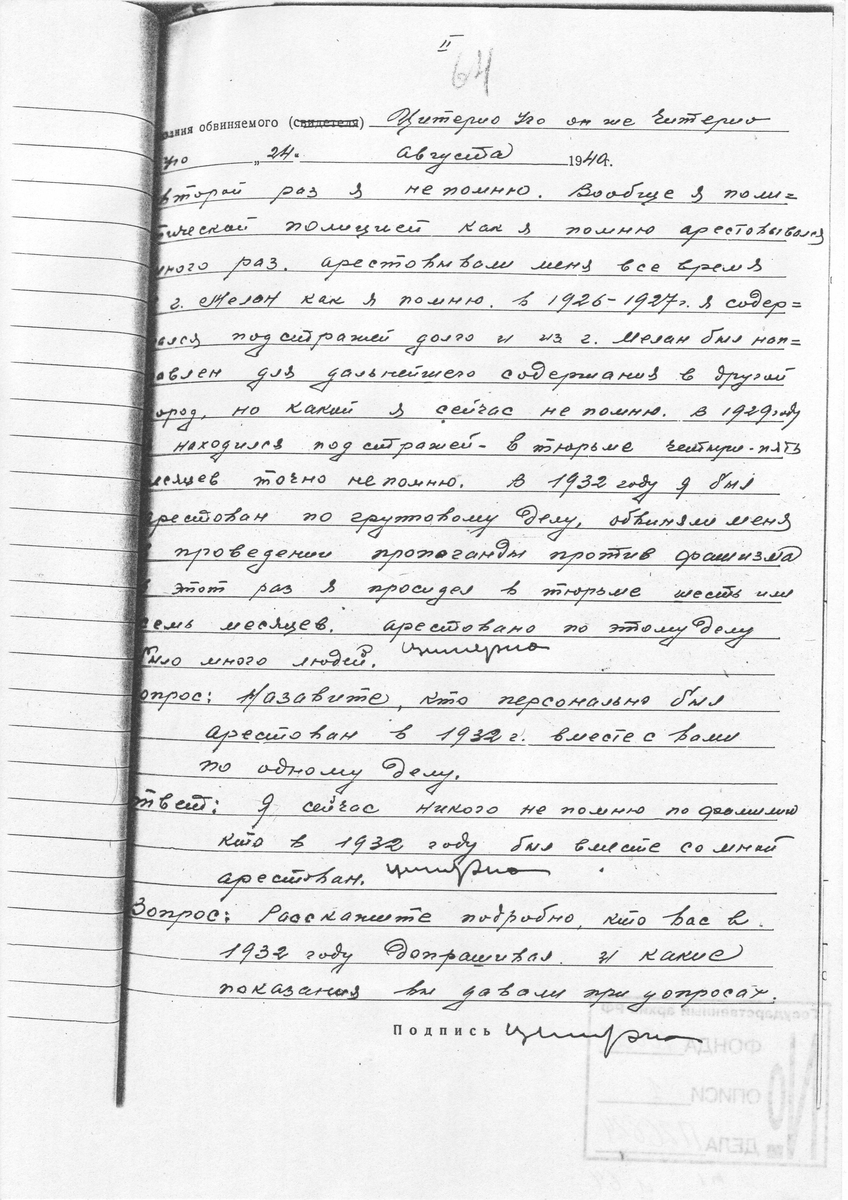 II
64
зания обвиняемого (свидетеля) Цитерио Уго он же Читерио
Уго „24“ Августа 1940г.
второй раз я не помню. Вообще я поли=
тической полицией как я помню арестовывался
много раз. Арестовывали меня все время
в г. Мелан как я помню. В 1926-1927г. я содер=
жался под стражей долго и из г. Мелан был нап=
равлен для дальнейшего содержания в другой
город, но какой я сейчас не помню. В 1929 году
я находился под стражей - в тюрьме четыре-пять
месяцев точно не помню. В 1932 году я был
арестован по групповому делу, обвиняли меня
в проведении пропоганды против фашизма
в этот раз я просидел в тюрьме шесть или
семь месяцев. Арестовано по этому делу
было много людей. Цитерио
опрос: Назавите, кто персонально был
арестован в 1932 г. вместе с вами
по одному делу.
твет: Я сейчас никого не помню по фамилию
кто в 1932 году был вместе со мной
арестован. Цитерио
Вопрос: Расскажите подробно, кто вас в
1932 году допрашивал и какие
показания вы давали при допросах.
Подпись Цитерио
Государственный архив РФ
ФОНДА
№ ОПИСИ 1
ДЕЛА